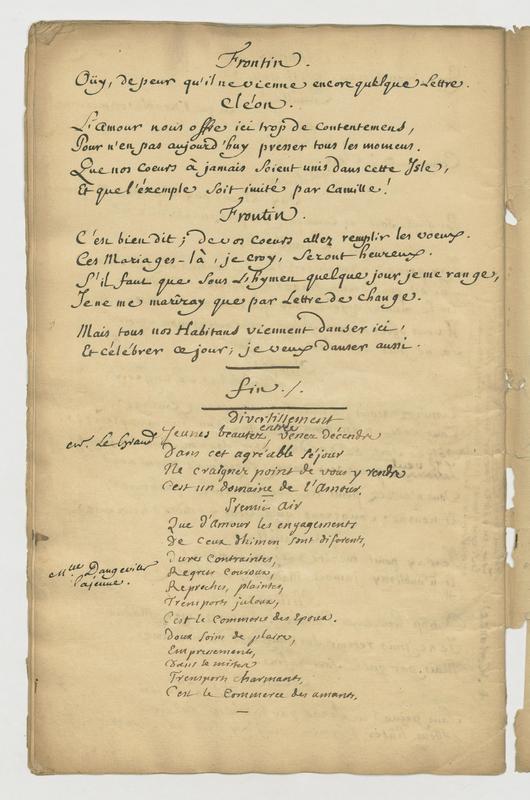 Frontin.
Oüy, de peur qu'il ne vienne encore quelque Lettre.
Cléon.
L'amour nous offre ici trop de contentemens,
Pour n'en pas aujourd'huy presser tous les momens.
Que nos coeurs à jamais soient unis dans cette Isle,
Et que l'éxemple soit imité par Camille!
Frontin.
C'est bien dit; de vos coeurs allez remplir les voeux.
Ces Mariages-là, je croy, seront heureux.
S'il faut que sous L'hymen quelque jour je me range,
Je ne me marîray que par Lettre de change.
Mais tous nos Habitans viennent danser ici,
Et célébrer ce jour; je veux danser aussi.
fin./.
Divertissement
entrée
mr. Le Grand
Jeunes beautez, venez décendre
Dans cet agréable séjour
Ne craignez point de vous y rendre
C'est un domaine de l'Amour.
Premier air
Que d'amour les engagements
De ceux dhimen sont diferents,
Mlle Dangeville
la jeune.
Dures contraintes,
Regrets couroux,
Reproches, plaintes,
Transports jaloux,
C'est le Commerce des Epoux.
Doux soins de plaire,
Empressements,
Dans le mistere
Transports charmants,
C'est le Commerce des amants.